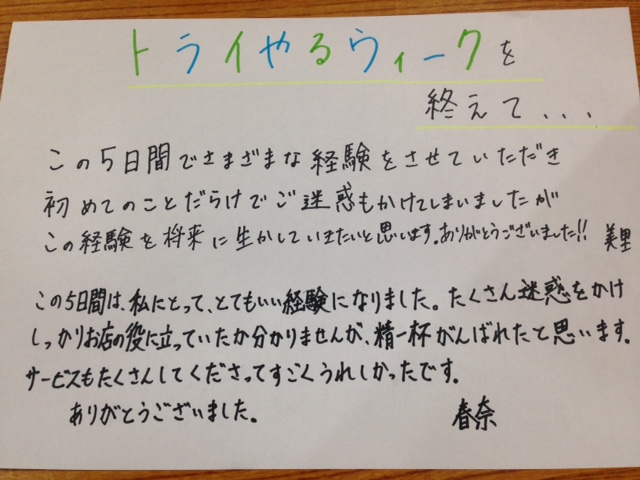 トライやるウィークを
終えて...
この5日間でさまざまな経験をさせていただき
初めてのことだらけでご迷惑もかけてしまいましたが
この経験を将来に生かしていきたいと思います。ありがとうございました!! 美里
この5日間は、私にとって、とてもいい経験になりました。たくさん迷惑をかけ
しっかりお店の役に立っていたか分かりませんが、精一杯がんばれたと思います。
サービスもたくさんしてくださってすごくうれしかったです。
ありがとうございました。 春奈